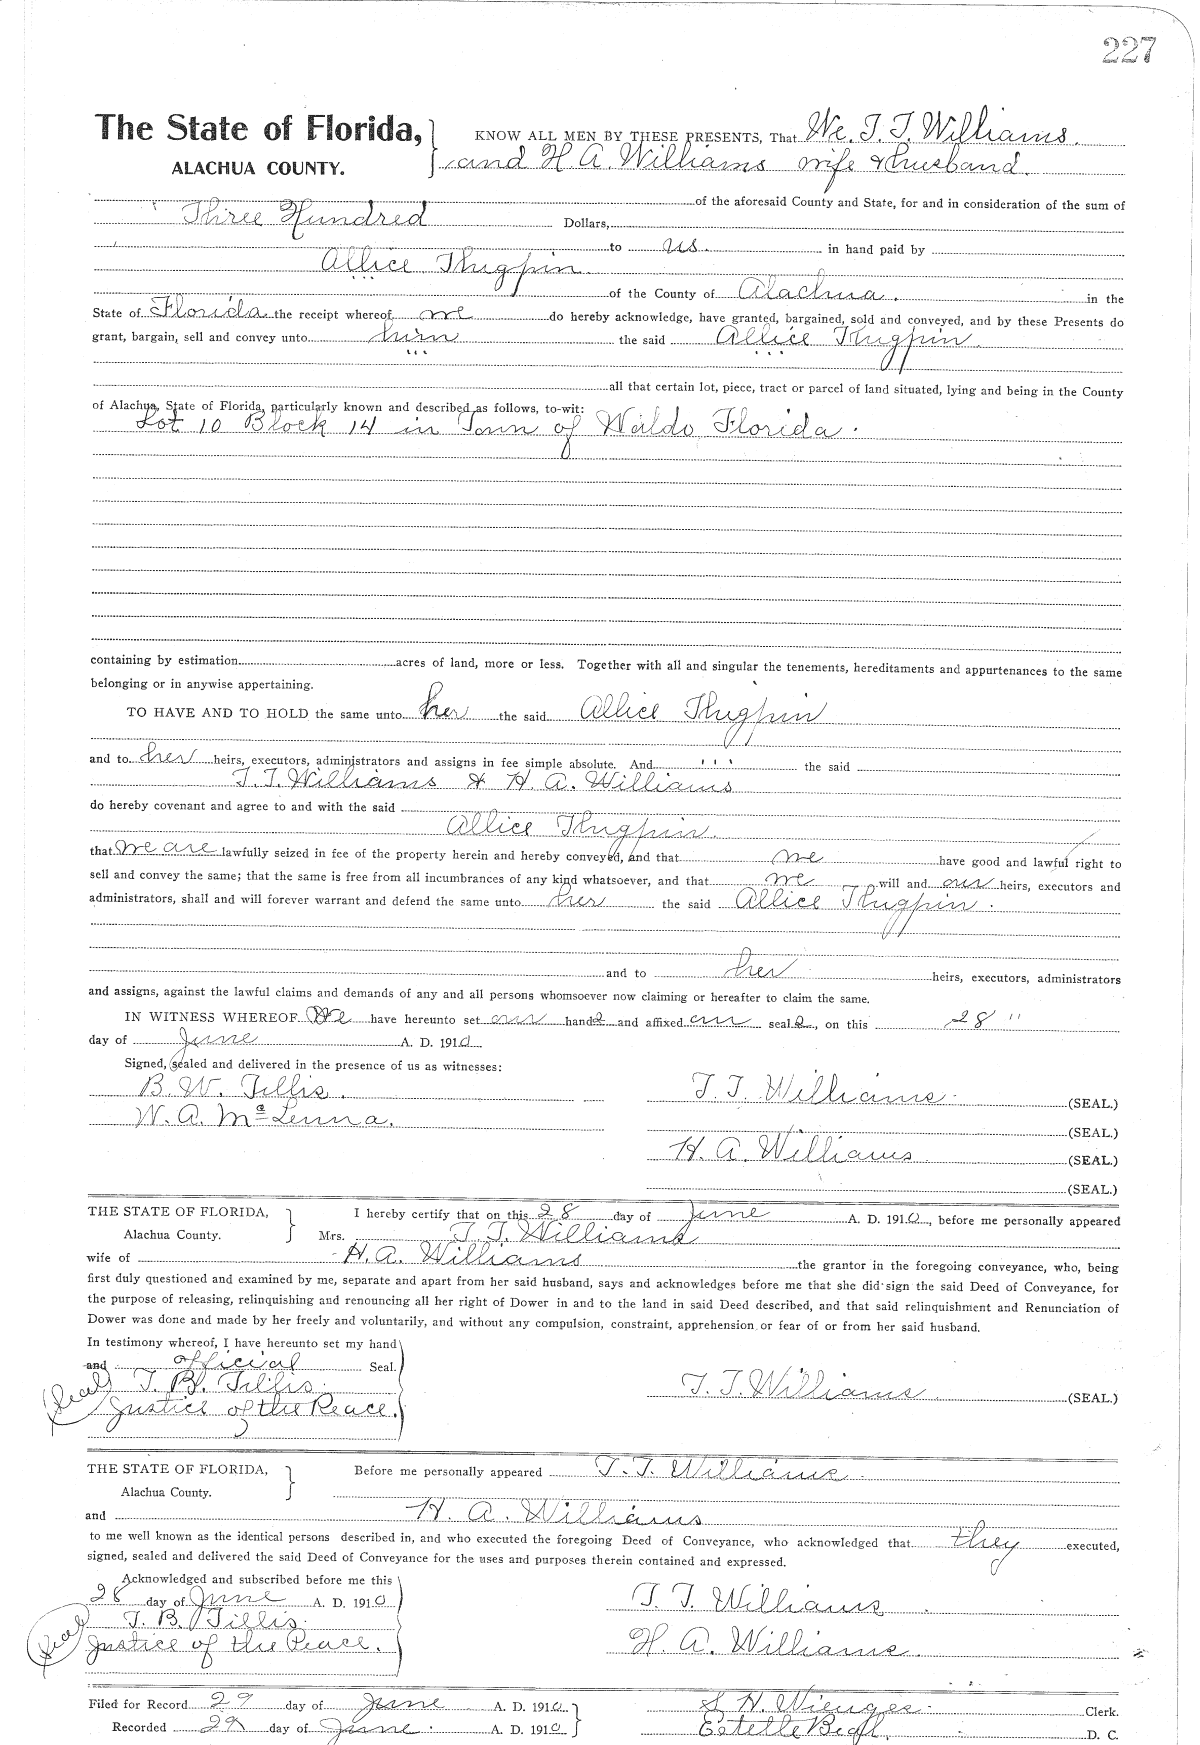 227
The State of Florida, KNOW ALL MEN BY THESE PRESENTS, That We, T. T. Williams
ALACHUA COUNTY. and H. A. Williams wife & husband.
of the aforesaid County and State, for and in consideration of the sum of
Three Hundred Dollars,
to us in hand paid by
Allice Thugpin
of the County of Alachua. in the
State of Florida the receipt whereof we do hereby acknowledge, have granted, bargained, sold and conveyed, and by these Presents do
grant, bargain, sell and convey unto him the said Allice Thugpin.
all that certain lot, piece, tract or parcel of land situated, lying and being in the County
of Alachua, State of Florida, particularly known and described as follows, to-wit:
Lot 10 Block 14 in Town of Waldo Florida.
containing by estimation acres of land, more or less. Together with all and singular the tenements, hereditaments and appurtenances to the same
belonging or in anywise appertaining.
TO HAVE AND TO HOLD the same unto her the said Allice Thugpin
and to her heirs, executors, administrators and assigns in fee simple absolute. And the said
T. T. Williams & H. A. Williams
do hereby covenant and agree to and with the said
Allice Thugpin.
that we are lawfully seized in fee of the property herein and hereby conveyed, and that we have good and lawful right to
sell and convey the same; that the same is free from all incumbrances of any kind whatsoever, and that we will and our heirs, executors and
administrators, shall and will forever warrant and defend the same unto her the said Allice Thugpin.
and to her heirs, executors, administrators
and assigns, against the lawful claims and demands of any and all persons whomsoever now claiming or hereafter to claim the same.
IN WITNESS WHEREOF We have hereunto set our hands and affixed our seals, on this 28 "
day of June A. D. 1910
Signed, sealed and delivered in the presence of us as witnesses:
B. W. Tillis. T. T. Williams. (SEAL.)
W. A. McLenna. (SEAL.)
H. A. Williams (SEAL.)
(SEAL.)
THE STATE OF FLORIDA, I hereby certify that on this 28 day of June A. D. 1910, before me personally appeared
Alachua County. Mrs. T. T. Williams
wife of H. A. Williams the grantor in the foregoing conveyance, who, being
first duly questioned and examined by me, separate and apart from her said husband, says and acknowledges before me that she did sign the said Deed of Conveyance, for
the purpose of releasing, relinquishing and renouncing all her right of Dower in and to the land in said Deed described, and that said relinquishment and Renunciation of
Dower was done and made by her freely and voluntarily, and without any compulsion, constraint, apprehension or fear of or from her said husband.
In testimony whereof, I have hereunto set my hand
and official Seal.
(Seal) T. B. Tillis. T. T. Williams (SEAL.)
Justice of the Peace.
THE STATE OF FLORIDA, Before me personally appeared T. T. Williams
Alachua County.
and H. A. Williams
to me well known as the identical persons described in, and who executed the foregoing Deed of Conveyance, who acknowledged that they executed,
signed, sealed and delivered the said Deed of Conveyance for the uses and purposes therein contained and expressed.
Acknowledged and subscribed before me this
28 day of June A. D. 1910 T. T. Williams
(Seal) T. B. Tillis.
Justice of the Peace. H. A. Williams
Filed for Record 29 day of June A. D. 1910. S. H. Wienges. Clerk.
Recorded 29 day of June. A. D. 1910 Estelle D. C.